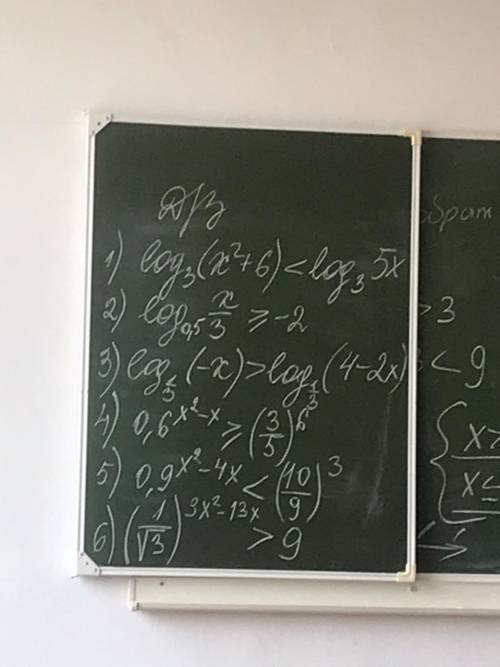 Д/з
1) log₃(x²+6) < log₃ 5x
2) log₀,₅ x/3 ≥ -2
3) log_{1/3} (-x) > log_{1/3} (4-2x)
4) 0,6^{x²-x} ≥ (3/5)^6
5) 0,9^{x²-4x} < (10/9)^3
6) (1/√3)^{3x²-13x} > 9
> 3
< 9